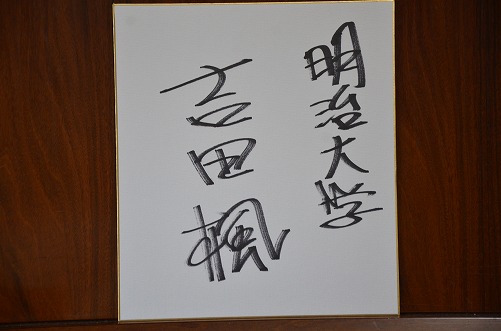 明治大学
吉田楓